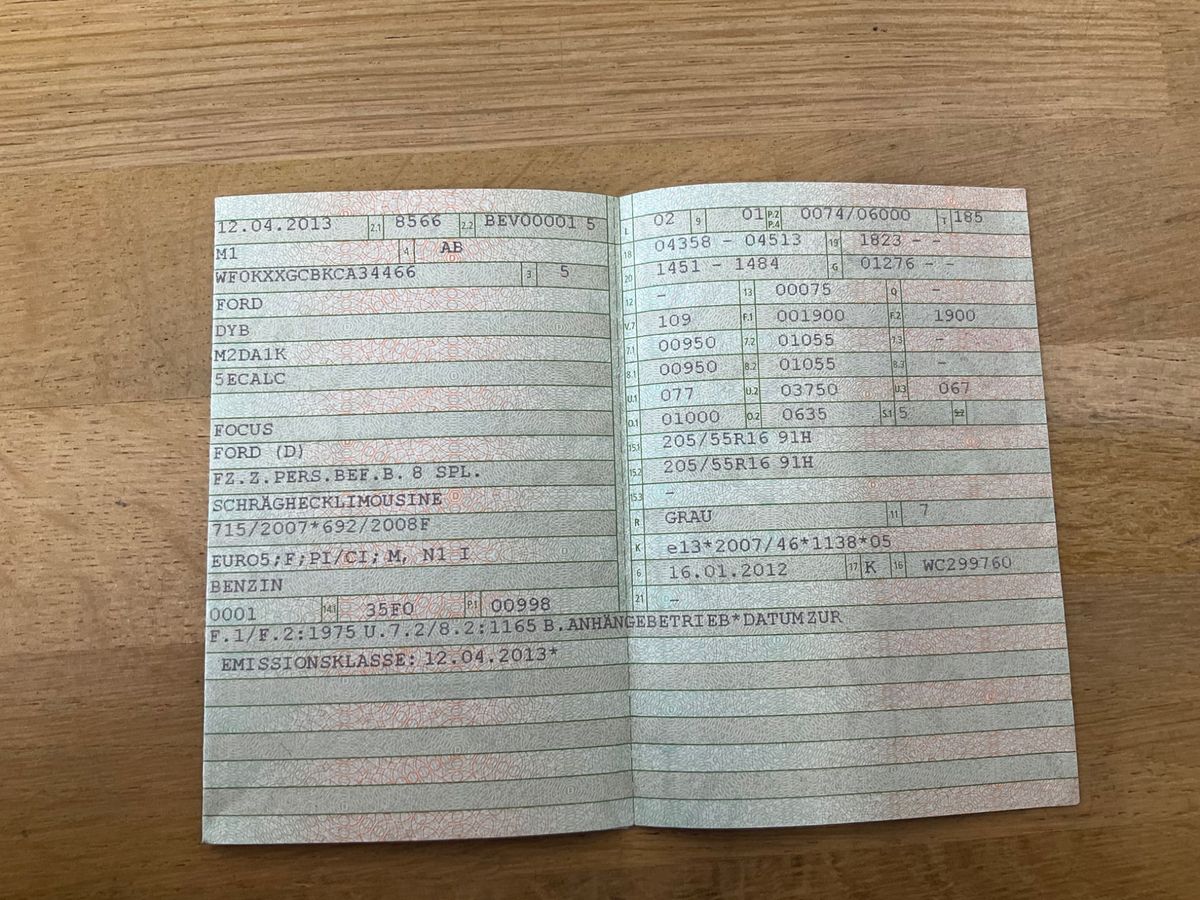 12.04.2013 2.1 8566 2.2 BEV00001 5
M1 4 AB
WF0KXXGCBKCA34466 3 5
FORD
DYB
M2DA1K
5ECALC
FOCUS
FORD (D)
FZ.Z.PERS.BEF.B. 8 SPL.
SCHRÄGHECKLIMOUSINE
715/2007*692/2008F
EURO5;F;PI/CI;M, N1 I
BENZIN
0001 14.1 35F0 P.1 00998
L 02 9 01 P.2 P.4 0074/06000 T 185
18 04358 - 04513 19 1823 - -
20 1451 - 1484 G 01276 - -
12 - 13 00075 Q -
V.7 109 F.1 001900 F.2 1900
7.1 00950 7.2 01055 7.3 -
8.1 00950 8.2 01055 8.3 -
U.1 077 U.2 03750 U.3 067
O.1 01000 O.2 0635 S.1 5 S.2
15.1 205/55R16 91H
15.2 205/55R16 91H
15.3 -
R GRAU 11 7
K e13*2007/46*1138*05
6 16.01.2012 17 K 16 WC299760
21 -
F.1/F.2:1975 U.7.2/8.2:1165 B.ANHÄNGEBETRIEB*DATUMZUR
EMISSIONSKLASSE: 12.04.2013*